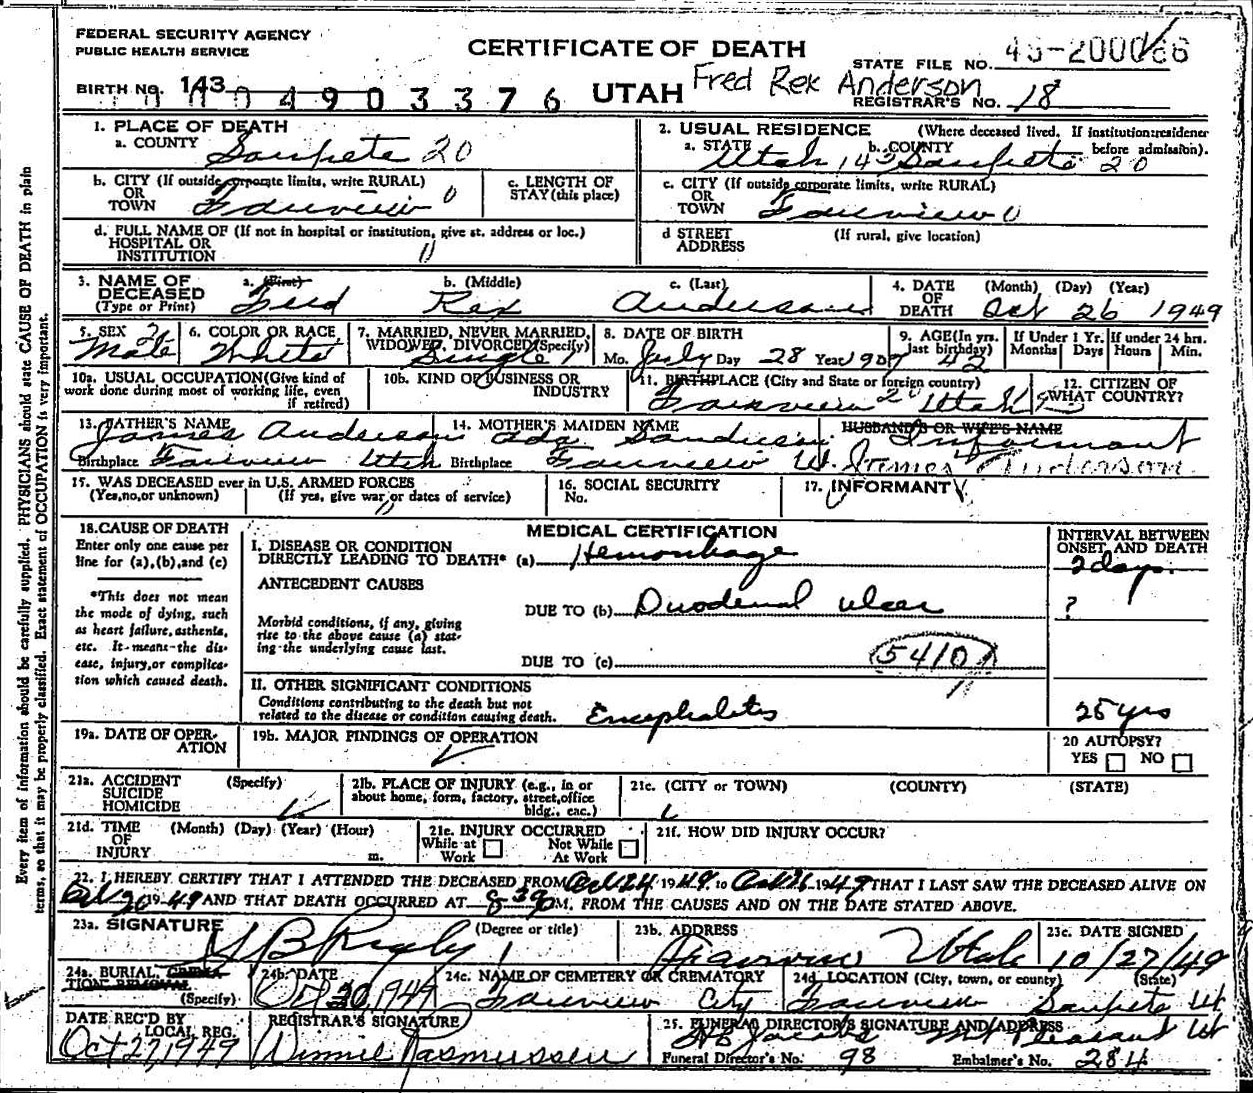 FEDERAL SECURITY AGENCY
PUBLIC HEALTH SERVICE
CERTIFICATE OF DEATH
STATE FILE NO.
BIRTH NO. 143 0 4 9 0 3 3 7 6
UTAH
Fred Rex Anderson
REGISTRAR'S NO. 18
1. PLACE OF DEATH
a. COUNTY Sanpete 20
2. USUAL RESIDENCE (Where deceased lived. If institution:residence before admission).
a. STATE Utah 143 b. COUNTY Sanpete 20
b. CITY (If outside corporate limits, write RURAL)
OR
TOWN Fairview 0
c. LENGTH OF
STAY (this place)
c. CITY (If outside corporate limits, write RURAL)
OR
TOWN Fairview 0
d. FULL NAME OF (If not in hospital or institution, give st. address or loc.)
HOSPITAL OR
INSTITUTION
d STREET
ADDRESS
(If rural, give location)
3. NAME OF
DECEASED
(Type or Print)
a. (First) Fred
b. (Middle) Rex
c. (Last) Anderson
4. DATE
OF
DEATH
(Month) (Day) (Year)
Oct 26 1949
5. SEX
Male
6. COLOR OR RACE
White
7. MARRIED, NEVER MARRIED,
WIDOWED, DIVORCED (Specify)
Single 1
8. DATE OF BIRTH
Mo. July Day 28 Year 1907
9. AGE (In yrs.
last birthday) 42
If Under 1 Yr.
Months Days
If under 24 hrs.
Hours Min.
10a. USUAL OCCUPATION (Give kind of
work done during most of working life, even
if retired)
10b. KIND OF BUSINESS OR
INDUSTRY
11. BIRTHPLACE (City and State or foreign country)
Fairview 20 Utah
12. CITIZEN OF
WHAT COUNTRY?
13. FATHER'S NAME
James Anderson
Birthplace Fairview Utah
14. MOTHER'S MAIDEN NAME
Ada Sanderson
Birthplace Fairview U.
HUSBAND'S OR WIFE'S NAME
Informant
James Anderson
15. WAS DECEASED ever in U.S. ARMED FORCES
(Yes,no,or unknown) (If yes, give war or dates of service)
16. SOCIAL SECURITY
No.
17. INFORMANT
18. CAUSE OF DEATH
Enter only one cause per
line for (a),(b),and (c)
*This does not mean
the mode of dying, such
as heart failure, asthenia,
etc. It means the dis-
ease, injury, or complica-
tion which caused death.
MEDICAL CERTIFICATION
I. DISEASE OR CONDITION
DIRECTLY LEADING TO DEATH* (a) Hemorrhage
ANTECEDENT CAUSES
DUE TO (b) Duodenal ulcer
Morbid conditions, if any, giving
rise to the above cause (a) stat-
ing the underlying cause last.
DUE TO (c)
5410
INTERVAL BETWEEN
ONSET AND DEATH
2 days.
?
II. OTHER SIGNIFICANT CONDITIONS
Conditions contributing to the death but not
related to the disease or condition causing death.
Encephalitis
25 yrs
19a. DATE OF OPER-
ATION
19b. MAJOR FINDINGS OF OPERATION
20 AUTOPSY?
YES NO
21a. ACCIDENT
SUICIDE
HOMICIDE
(Specify)
21b. PLACE OF INJURY (e.g., in or
about home, form, factory, street,office
bldg., eac.)
21c. (CITY or TOWN) (COUNTY) (STATE)
21d. TIME
OF
INJURY
(Month) (Day) (Year) (Hour)
m.
21e. INJURY OCCURRED
While at
Work
Not While
At Work
21f. HOW DID INJURY OCCUR?
22. I HEREBY CERTIFY THAT I ATTENDED THE DECEASED FROM Oct 24 1949. TO Oct 26 1949 THAT I LAST SAW THE DECEASED ALIVE ON
Oct 26 1949 AND THAT DEATH OCCURRED AT 8 30 P M. FROM THE CAUSES AND ON THE DATE STATED ABOVE.
23a. SIGNATURE
(Degree or title)
23b. ADDRESS
Fairview Utah
23c. DATE SIGNED
10/27/49
24a. BURIAL, CREMA-
TION, REMOVAL
(Specify)
24b. DATE
Oct 30, 1949
24c. NAME OF CEMETERY OR CREMATORY
Fairview City
24d. LOCATION (City, town, or county) (State)
Fairview Sanpete Ut
DATE REC'D BY
LOCAL REG.
Oct 27, 1949
REGISTRAR'S SIGNATURE
Winnie Rasmussen
25. FUNERAL DIRECTOR'S SIGNATURE AND ADDRESS
Jacobs Mt Pleasant Ut
Funeral Director's No. 98
Embalmer's No. 284
Every item of information should be carefully supplied. PHYSICIANS should state CAUSE OF DEATH in plain
terms, so that it may be properly classified. Exact statement of OCCUPATION is very important.